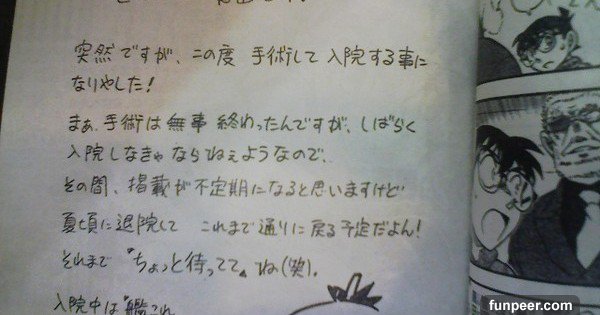 突然ですが、この度 手術して入院する事に
なりやした！
まぁ、手術は無事 終わったんですが、しばらく
入院しなきゃならねぇようなので、
その間、掲載が不定期になると思いますけど
夏頃に退院して これまで通りに戻る予定だよん！
それまで 〝ちょっと待ってて〟ね(笑)。
入院中は〝艦これ
funpeer.com